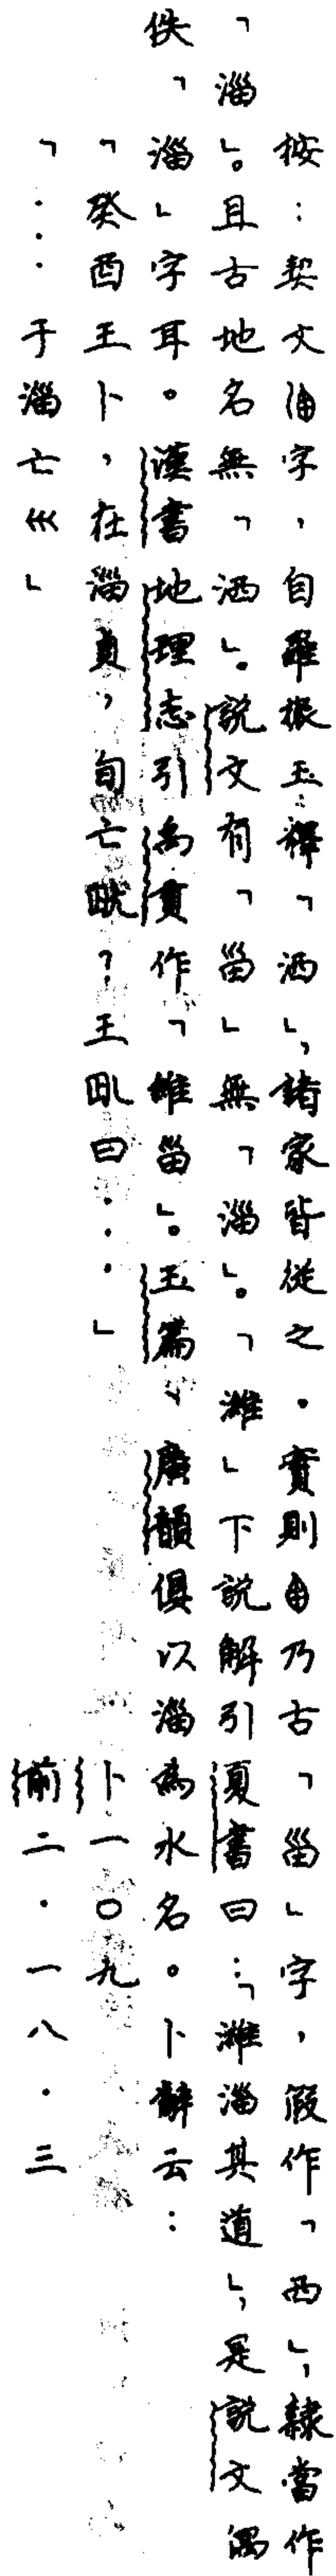 按：契文𤰔字，自羅振玉釋「洒」，諸家皆從之。實則𠙹乃古「甾」字，假作「西」，隸當作
「淄」。且古地名無「洒」。說文有「甾」無「淄」。「濰」下說解引夏書曰：「濰淄其道」，是說文偶
佚「淄」字耳。漢書地理志引禹貢作「惟甾」。玉篇、廣韻俱以淄為水名。卜辭云：
「癸酉王卜，在淄貞，旬亡𡆥？王𡆥曰...」 卜一〇九
「...于淄亡𡿧」 前二．一八．三